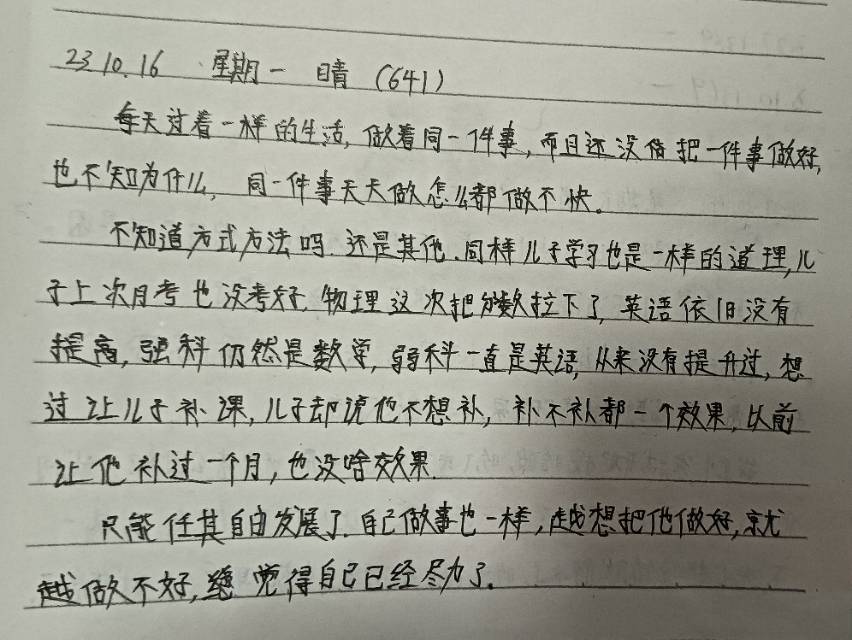 23.10.16 星期一 晴 (641)
每天过着一样的生活, 做着同一件事, 而且还没倍把一件事做好,
也不知为什么, 同一件事天天做怎么都做不快。
不知道方式方法吗. 还是其他. 同样儿子学习也是一样的道理, 儿
子上次月考也没考好. 物理这次把分数拉下了, 英语依旧没有
提高, 强科仍然是数学, 弱科一直是英语, 从来没有提升过, 想
过让儿子补课, 儿子却说他不想补, 补不补都一个效果, 以前
让他补过一个月, 也没啥效果.
只能任其自由发展了. 自己做事也一样, 越想把他做好, 就
越做不好, 总觉得自己已经尽力了.